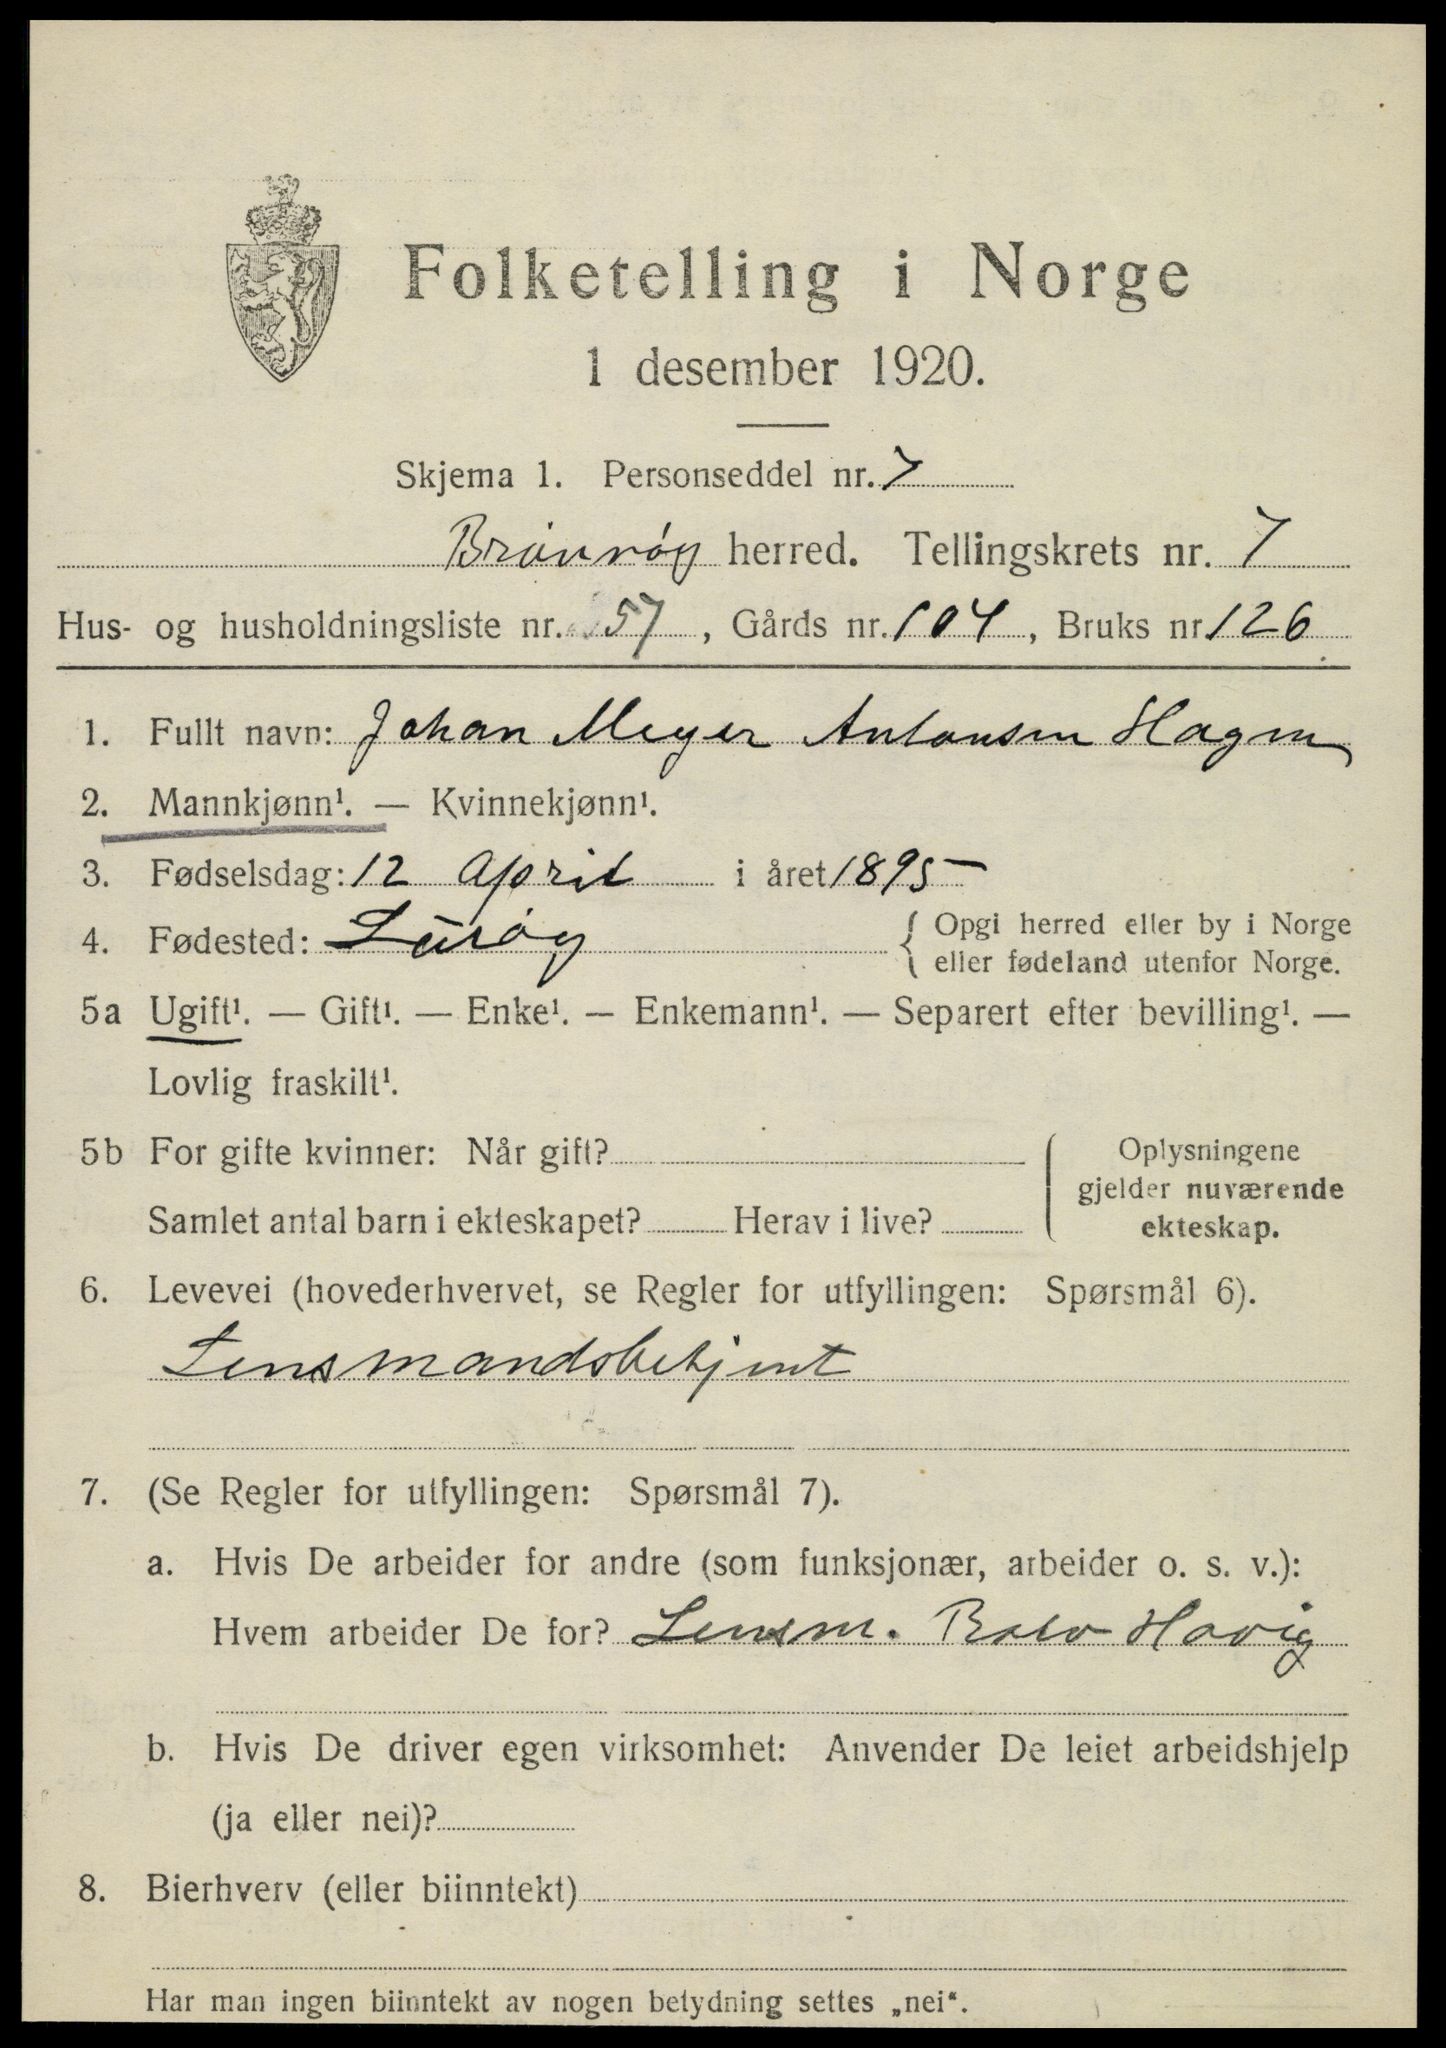 Folketelling i Norge
1 desember 1920.
Skjema 1. Personseddel nr. 7
Brönnöy herred. Tellingskrets nr. 7
Hus- og husholdningsliste nr. 57, Gårds nr. 104, Bruks nr 126
1. Fullt navn: Johan Meyer Antonsen Hagen
2. Mannkjønn¹. — Kvinnekjønn¹.
3. Fødselsdag: 12 April i året 1895
4. Fødested: Luröy { Opgi herred eller by i Norge
eller fødeland utenfor Norge.
5a Ugift¹. — Gift¹. — Enke¹. — Enkemann¹. — Separert efter bevilling¹. —
Lovlig fraskilt¹.
5b For gifte kvinner: Når gift?
Samlet antal barn i ekteskapet? Herav i live?
Oplysningene
gjelder nuværende
ekteskap.
6. Levevei (hovederhvervet, se Regler for utfyllingen: Spørsmål 6).
Lensmandsbetjent
7. (Se Regler for utfyllingen: Spørsmål 7).
a. Hvis De arbeider for andre (som funksjonær, arbeider o. s. v.):
Hvem arbeider De for? Lensm. Havig
b. Hvis De driver egen virksomhet: Anvender De leiet arbeidshjelp
(ja eller nei)?
8. Bierhverv (eller biinntekt)
Har man ingen biinntekt av nogen betydning settes „nei“.